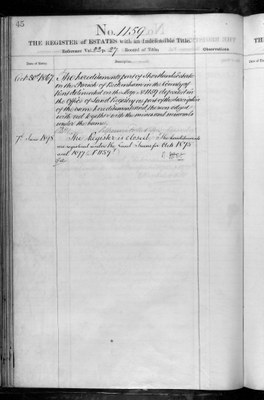 45
No. 1159
THE REGISTER of ESTATES with an Indefeasible Title
Reference Vol. 22 p. 27. Record of Title.
Date of Entry.
Description.
Observations
Octr 30th 1867.
The hereditaments part of Shorthand Estate
in the Parish of Rochersham in the County of
Kent delineated on the Map No 1159 deposited in
the Office of Land Registry as part of the description
of the same hereditaments and thereon edged
with red together with the mines and minerals
under the same.
7th June 1878.
The Register is closed. The hereditaments
are registered under the Land Transfer Act 1875